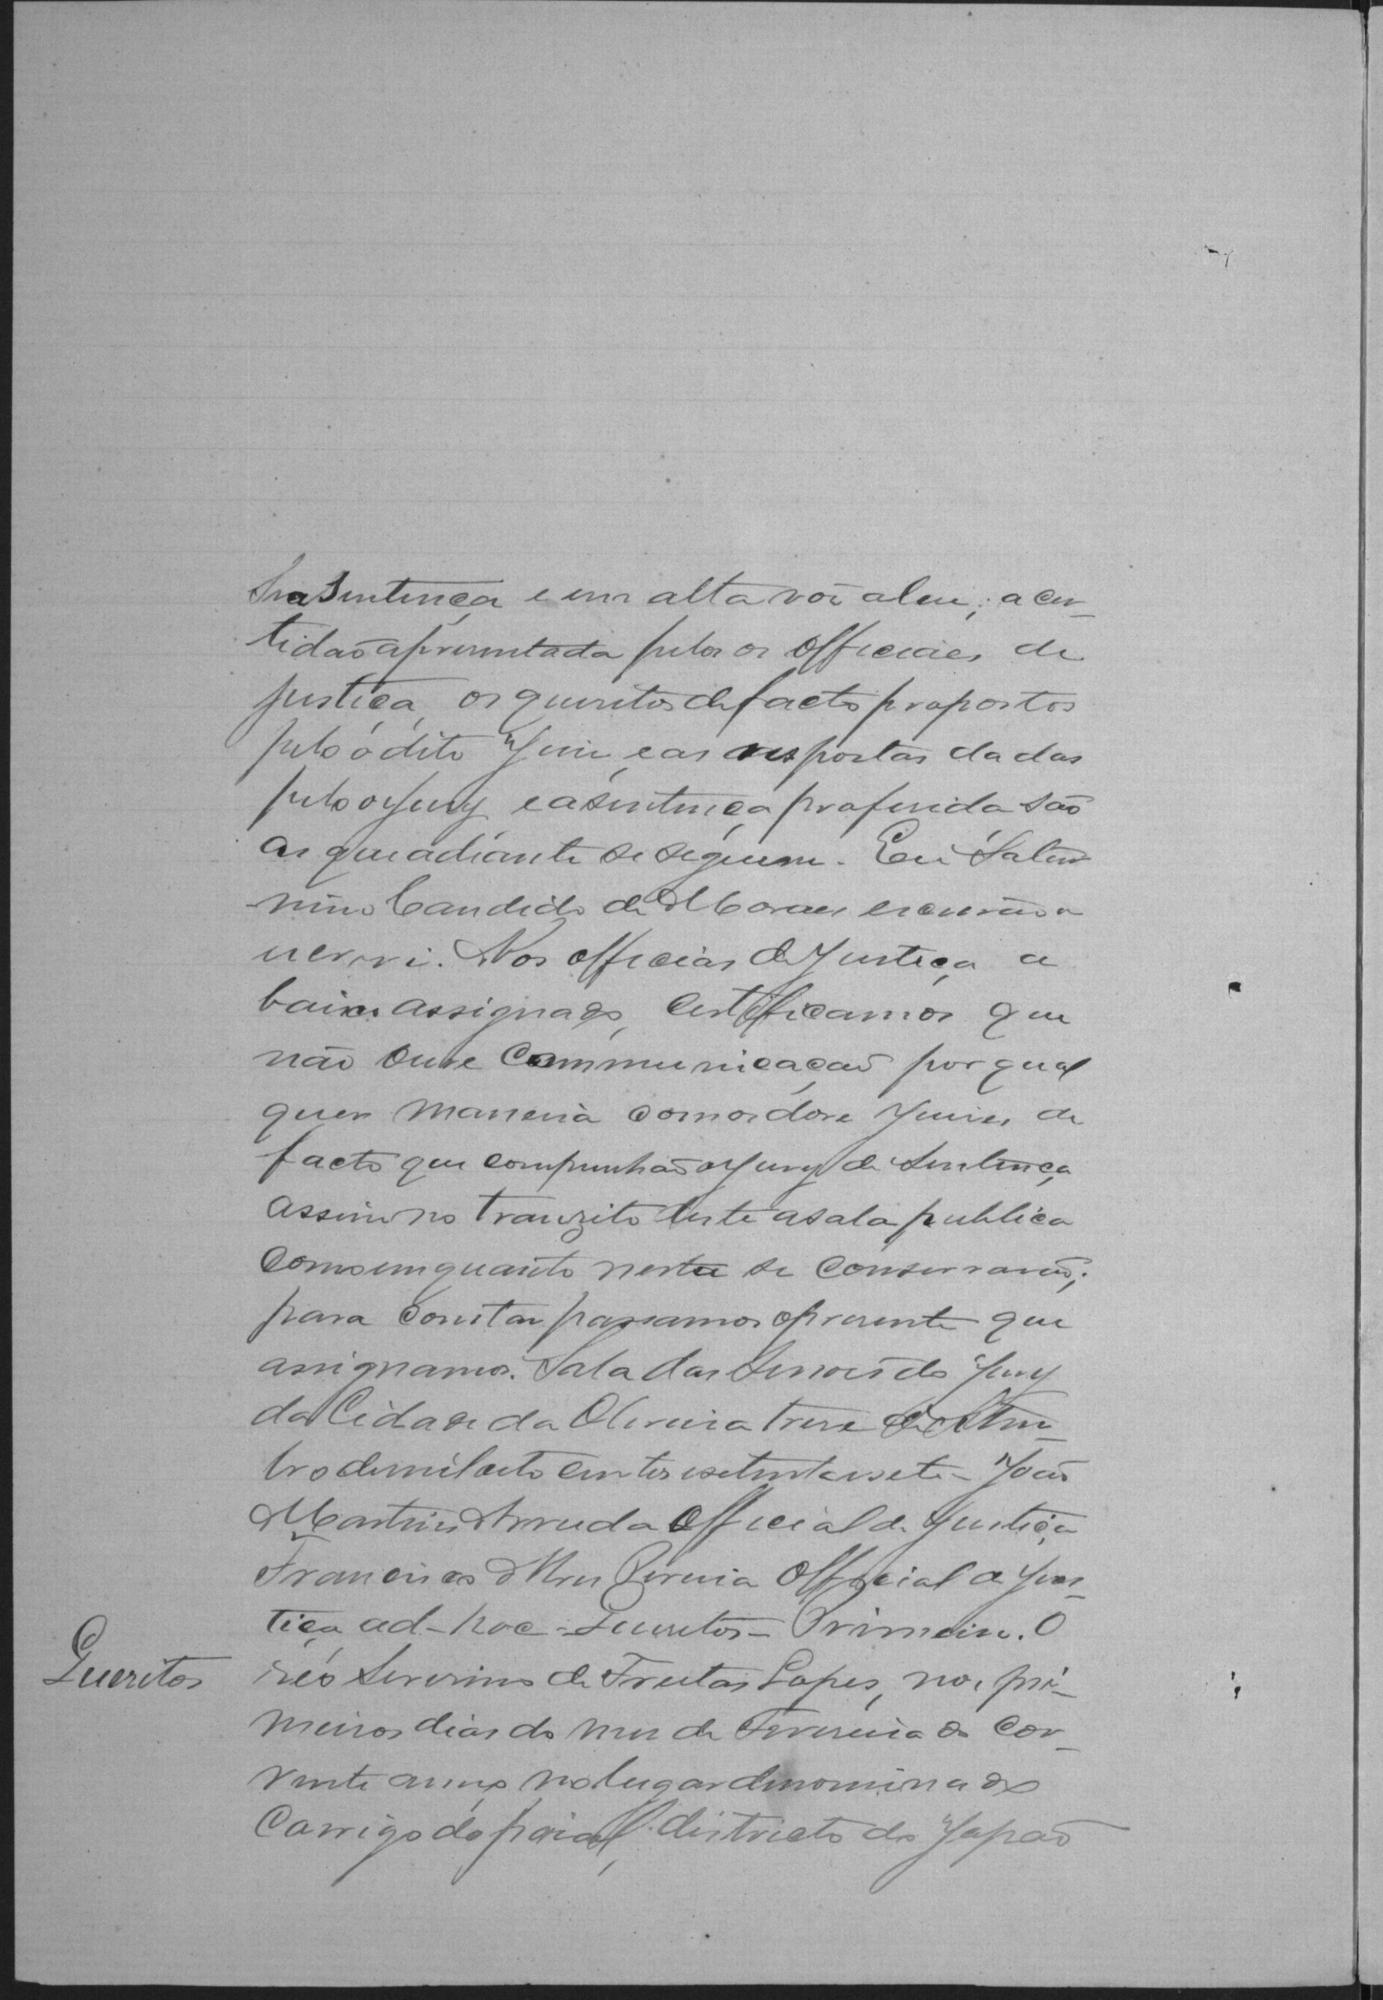 sua Sentença e em alta voz a leu; a cer-
tidão apresentada pelos os Officiaes de
justiça, os quesitos de facto propostos
pelo ó dito Juiz e as respostas dadas
pelo o Jury e a sentença proferida são
as que adiante se seguem. Eu Satur
nino Candido de Moraes escrivão o
escrevi. Nos officias de Justiça a
baixo assignados, Certificamos que
não ouve Communicação por qual
quer maneira com os doze Juizes de
facto que compunhão o Jury de Sentença
assim no tranzito deste a sala publica
como emquanto nesta se conservarão;
para constar passamos o presente que
assignamos. Sala das Sessões do Jury
da Cidade da Oliveira treze de Setem-
bro de mil oito centos e setenta e sete - João
Martins Arruda Official de Justiça
Francisco Pereira Official de Jus-
tiça ad-hoc - Quesitos - Primeiro. O
Quesitos
réo Severino de Freitas Lopes, nos pri-
meiros dias do mez de Fevereiro do Cor-
rente anno, no lugar denominado
Corrigo do districto do Japão